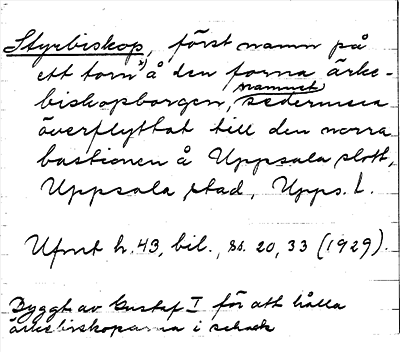 Styrbiskop, först namn på
ett torn¹) å den forna ärke-
biskopborgen, namnet sedermera
överflyttat till den norra
bastionen å Uppsala slott,
Uppsala stad, Upps. l.
Ufmt h. 43, bil., ss. 20, 33 (1929).
Byggt av Gustaf I för att hålla
ärkebiskoparna i schack